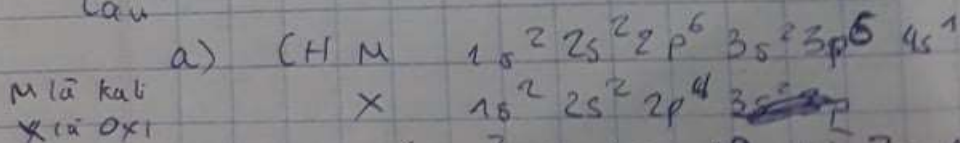 Câu
a) CH M 1s² 2s² 2p⁶ 3s² 3p⁶ 4s¹
M là kali X 1s² 2s² 2p⁴
X là Oxi